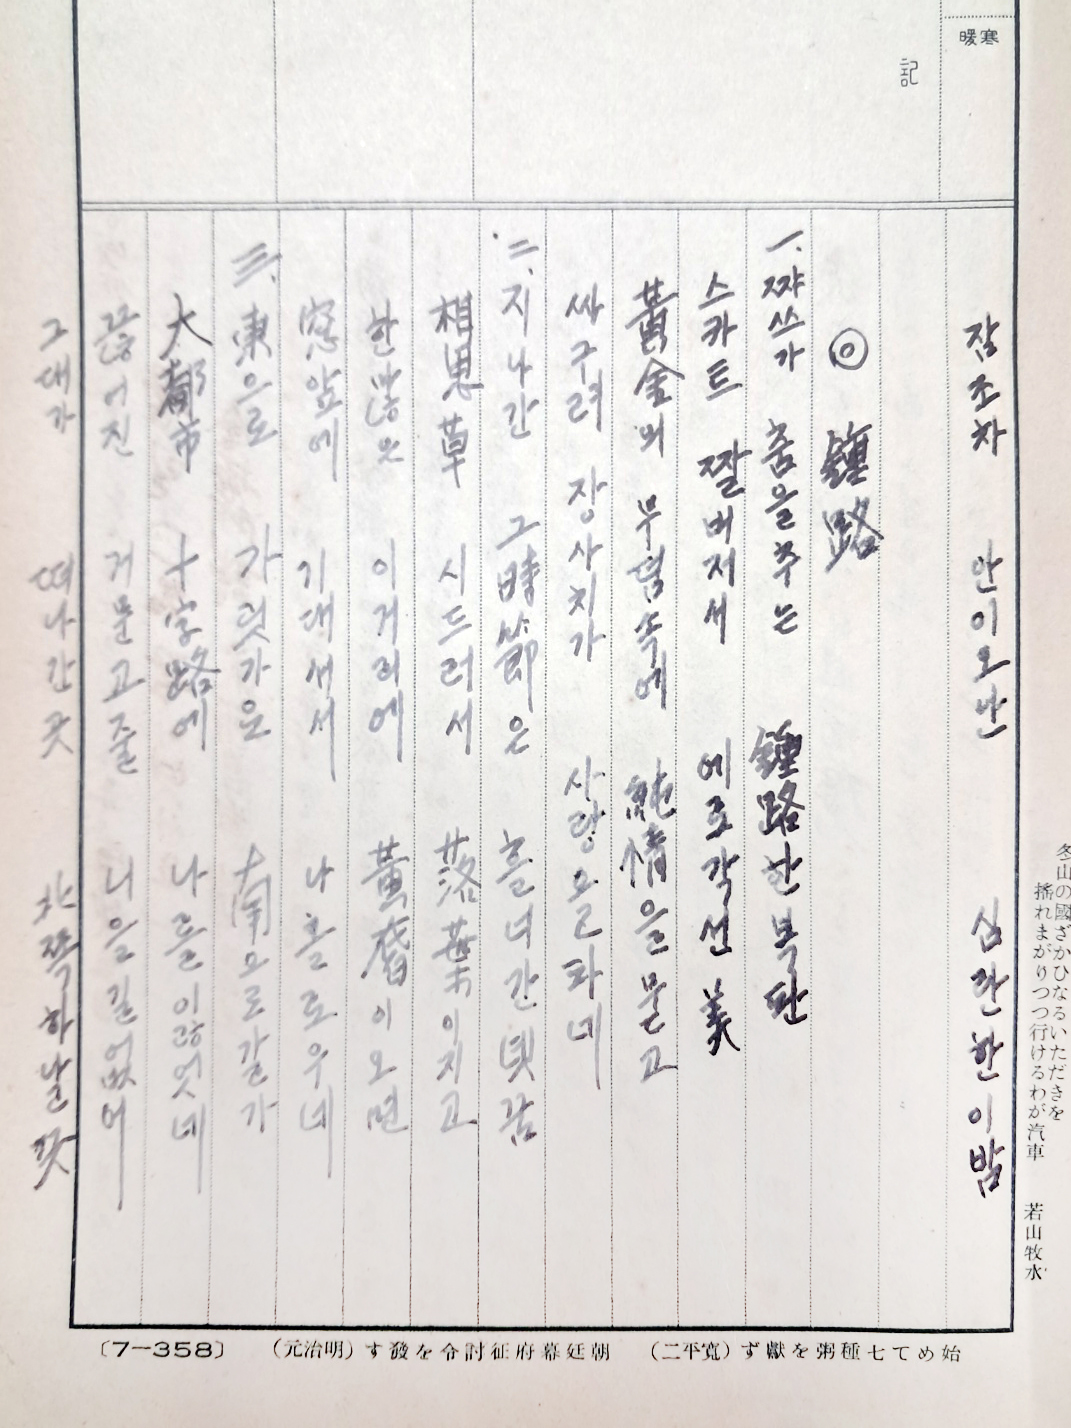 寒暖
記
잠조차 안이오난 심란한 이밤
◎ 鍾路
一、쨔쓰가 춤을추는 鍾路한복판
스카트 짤버저서 에로각선美
黃金의 무덤속에 純情을뭇고
싸구려 장사치가 사랑을파네
二、지나간 그時節은 흘너간녯꿈
相思草 시드러서 落葉이지고
한많은 이거리에 黃昏이오면
窓앞에 기대서서 나홀로우네
三、東으로 가럿가은 南으로갈가
大都市 十字路에 나를잃엇네
끊어진 거문고줄 니을길없어
그대가 떠나간곳 北쪽하날끗
冬山の國ざかひなるいただきを
搖れまがりつつ行けるわが汽車 若山牧水
始めて七種粥を獻ず（寬平二） 朝廷幕府征討令を發す（明治元）
〔7－358〕